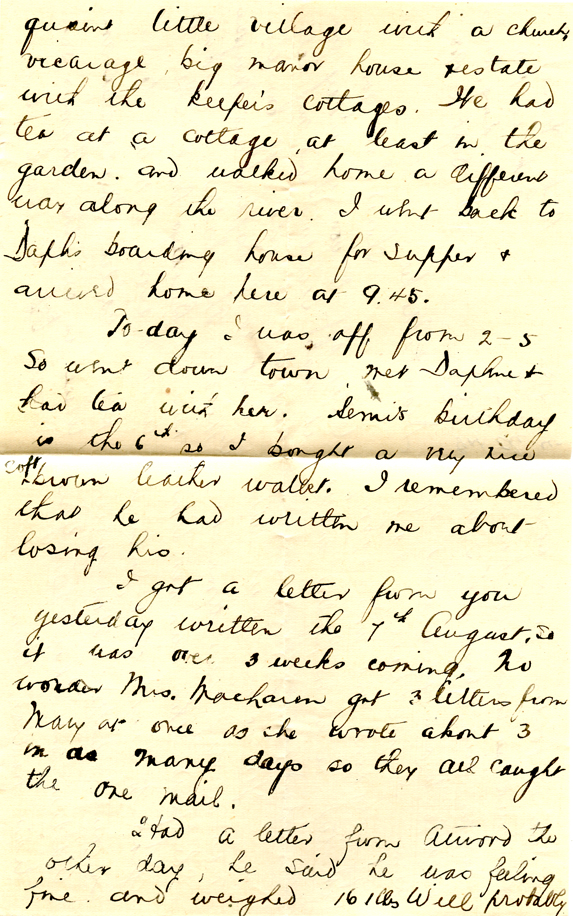 quaint little village with a church,
vicarage, big manor house & estate
with the keeper's cottages. We had
tea at a cottage, at least in the
garden. and walked home a different
way along the river. I went back to
Daph's boarding house for supper &
arrived home here at 9.45.
To-day I was off from 2-5
So went down town, met Daphne &
had tea with her. birthday
is the 6th so I bought a very nice
soft
brown leather wallet. I remembered
that he had written me about
losing his.
I got a letter from you
yesterday written the 7th August, so
it was over 3 weeks coming. No
wonder Mrs. got 3 letters from
Mary at once as she wrote about 3
in as many days so they all caught
the one mail.
Had a letter from the
other day, he said he was feeling
fine. and weighed 161 lbs Will probably